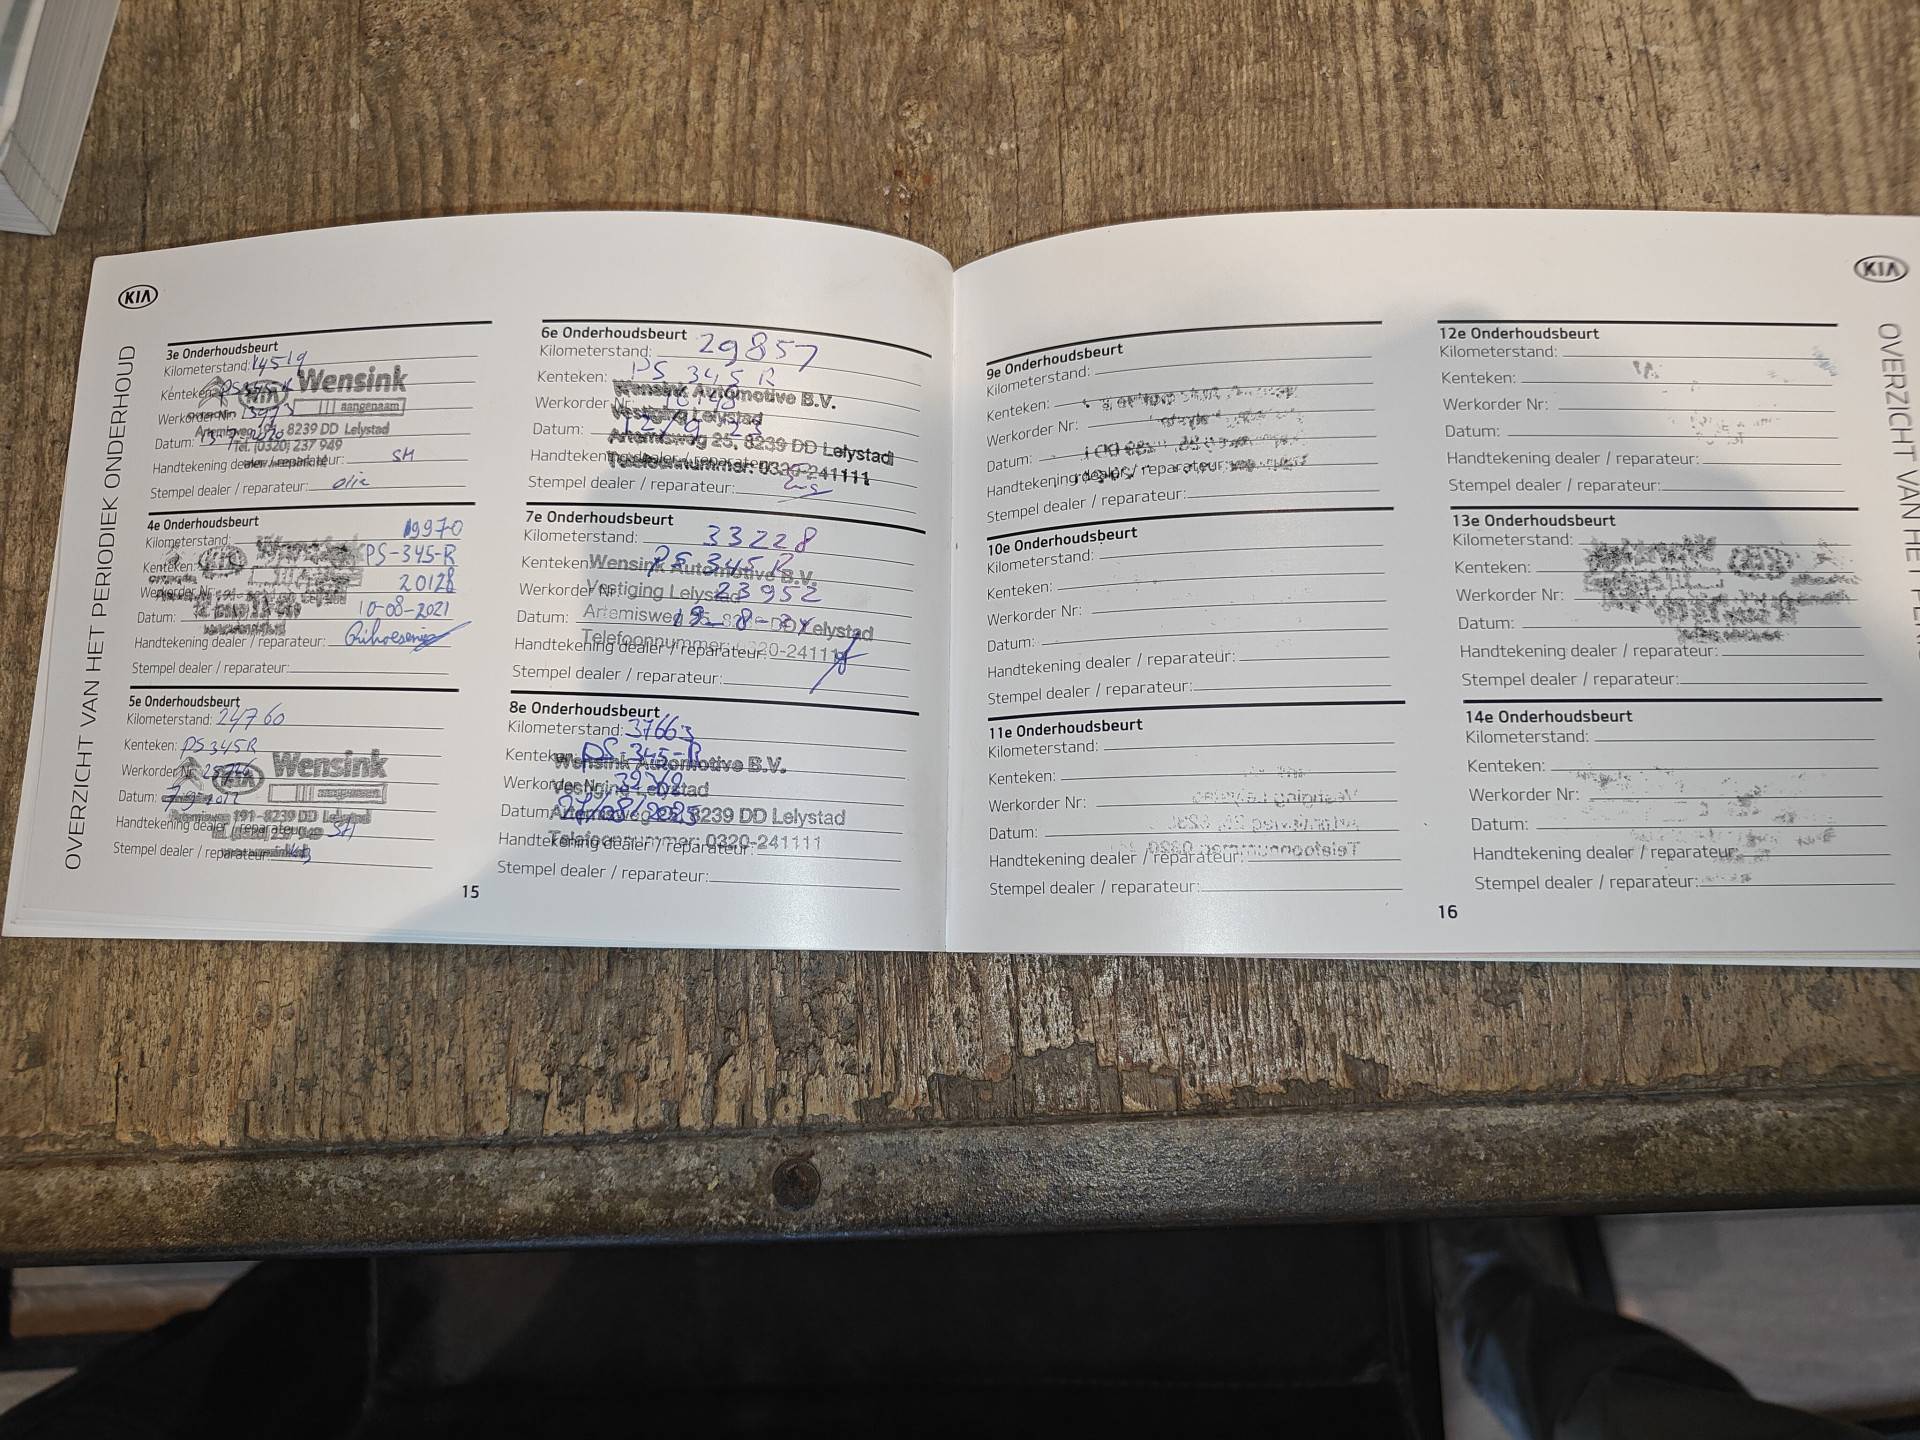 KIA
OVERZICHT VAN HET PERIODIEK ONDERHOUD
3e Onderhoudsbeurt
Kilometerstand: 14519
Kenteken:
Wensink
KIA
aangenaam
Werkorder Nr:
Artemisweg 191, 8239 DD Lelystad
Datum:
Tel. (0320) 237 949
Handtekening dealer / reparateur: SH
Stempel dealer / reparateur: olie
4e Onderhoudsbeurt
Kilometerstand: 19970
Kenteken: PS-345-R
KIA
Werkorder Nr: 20128
Datum: 10-08-2021
Handtekening dealer / reparateur:
Stempel dealer / reparateur:
5e Onderhoudsbeurt
Kilometerstand: 24760
Kenteken: PS345R
KIA Wensink
Werkorder Nr:
Datum:
191-8239 DD Lelystad
Handtekening dealer / reparateur: SH
Stempel dealer / reparateur:
6e Onderhoudsbeurt
Kilometerstand: 29857
Kenteken: PS 345 R
Wensink Automotive B.V.
Werkorder Nr:
Vestiging Lelystad
Datum:
Artemisweg 25, 8239 DD Lelystad
Handtekening dealer / reparateur:
Telefoonnummer: 0320-241111
Stempel dealer / reparateur:
7e Onderhoudsbeurt
Kilometerstand: 33228
Kenteken: PS 345 R
Wensink Automotive B.V.
Werkorder Nr: 23952
Vestiging Lelystad
Datum:
Artemisweg 25, 8239 DD Lelystad
Handtekening dealer / reparateur:
Telefoonnummer: 0320-241111
Stempel dealer / reparateur:
8e Onderhoudsbeurt
Kilometerstand: 37663
Kenteken: PS-345-R
Wensink Automotive B.V.
Werkorder Nr:
Vestiging Lelystad
Datum:
Artemisweg 25, 8239 DD Lelystad
Handtekening dealer / reparateur:
Telefoonnummer: 0320-241111
Stempel dealer / reparateur:
15
9e Onderhoudsbeurt
Kilometerstand:
Kenteken:
Werkorder Nr:
Datum:
Handtekening dealer / reparateur:
Stempel dealer / reparateur:
10e Onderhoudsbeurt
Kilometerstand:
Kenteken:
Werkorder Nr:
Datum:
Handtekening dealer / reparateur:
Stempel dealer / reparateur:
11e Onderhoudsbeurt
Kilometerstand:
Kenteken:
Werkorder Nr:
Datum:
Handtekening dealer / reparateur:
Stempel dealer / reparateur:
12e Onderhoudsbeurt
Kilometerstand:
Kenteken:
Werkorder Nr:
Datum:
Handtekening dealer / reparateur:
Stempel dealer / reparateur:
13e Onderhoudsbeurt
Kilometerstand:
Kenteken:
Werkorder Nr:
Datum:
Handtekening dealer / reparateur:
Stempel dealer / reparateur:
14e Onderhoudsbeurt
Kilometerstand:
Kenteken:
Werkorder Nr:
Datum:
Handtekening dealer / reparateur:
Stempel dealer / reparateur:
16
KIA
OVERZICHT VAN HET